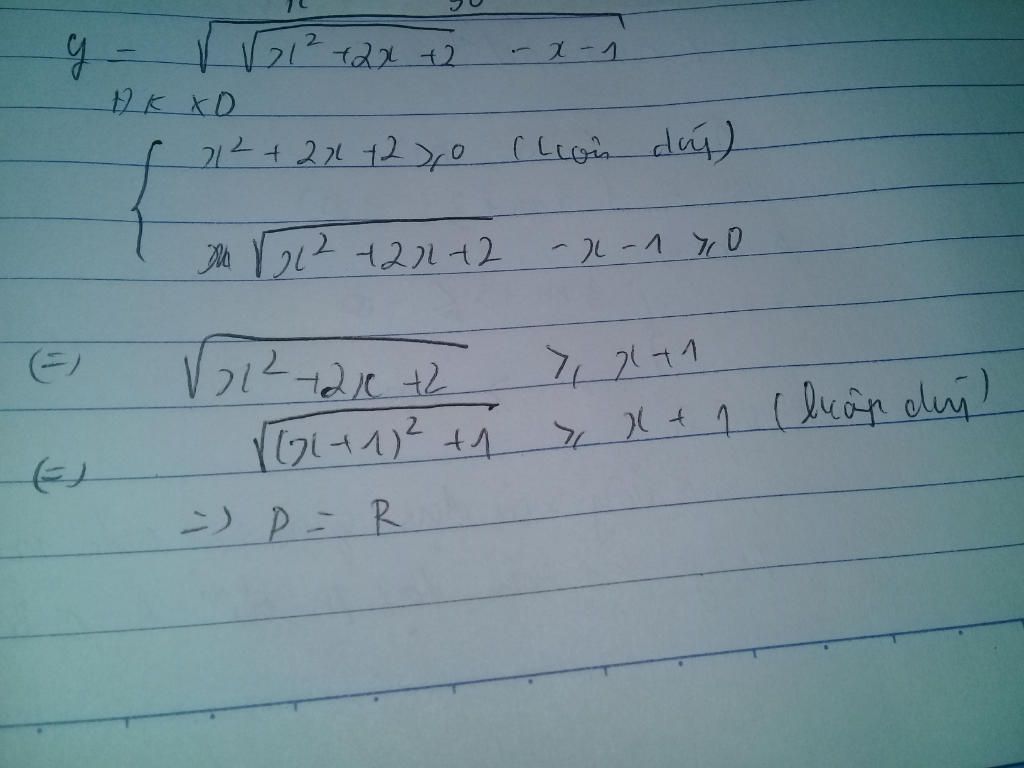 y = √(√(x² + 2x + 2) - x - 1)
ĐK XĐ
{ x² + 2x + 2 ≥ 0 (luôn đúng)
√(x² + 2x + 2) - x - 1 ≥ 0
(=) √(x² + 2x + 2) ≥ x + 1
(=) √((x + 1)² + 1) ≥ x + 1 (luôn đúng)
=) D = R